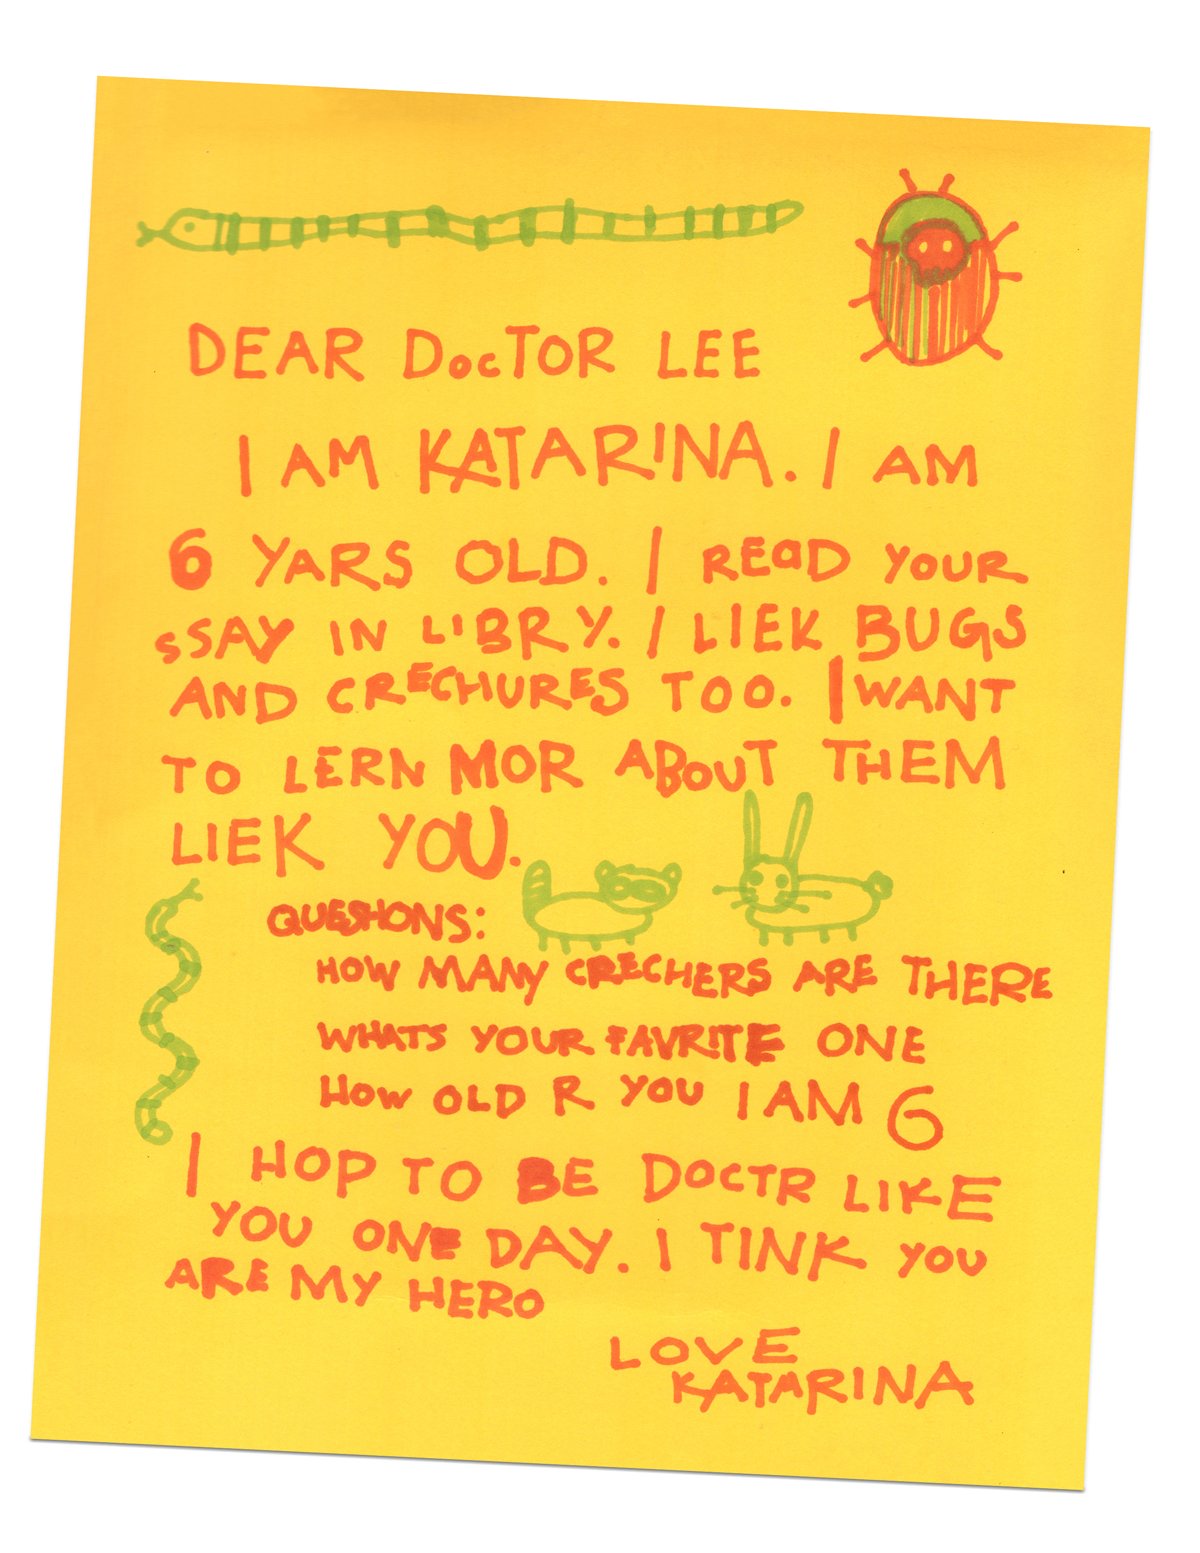 DEAR DocTOR LEE
I AM KATARINA. I AM
6 YARS OLD. I READ YOUR
SSAY IN LIBRY. I LIEK BUGS
AND CRECHURES TOO. I WANT
TO LERN MOR ABOUT THEM
LIEK YOU.
QUESHONS:
HOW MANY CRECHERS ARE THERE
WHATS YOUR FAVRITE ONE
HOW OLD R YOU I AM 6
I HOP TO BE DOCTR LIKE
YOU ONE DAY. I TINK YOU
ARE MY HERO
LOVE
KATARINA